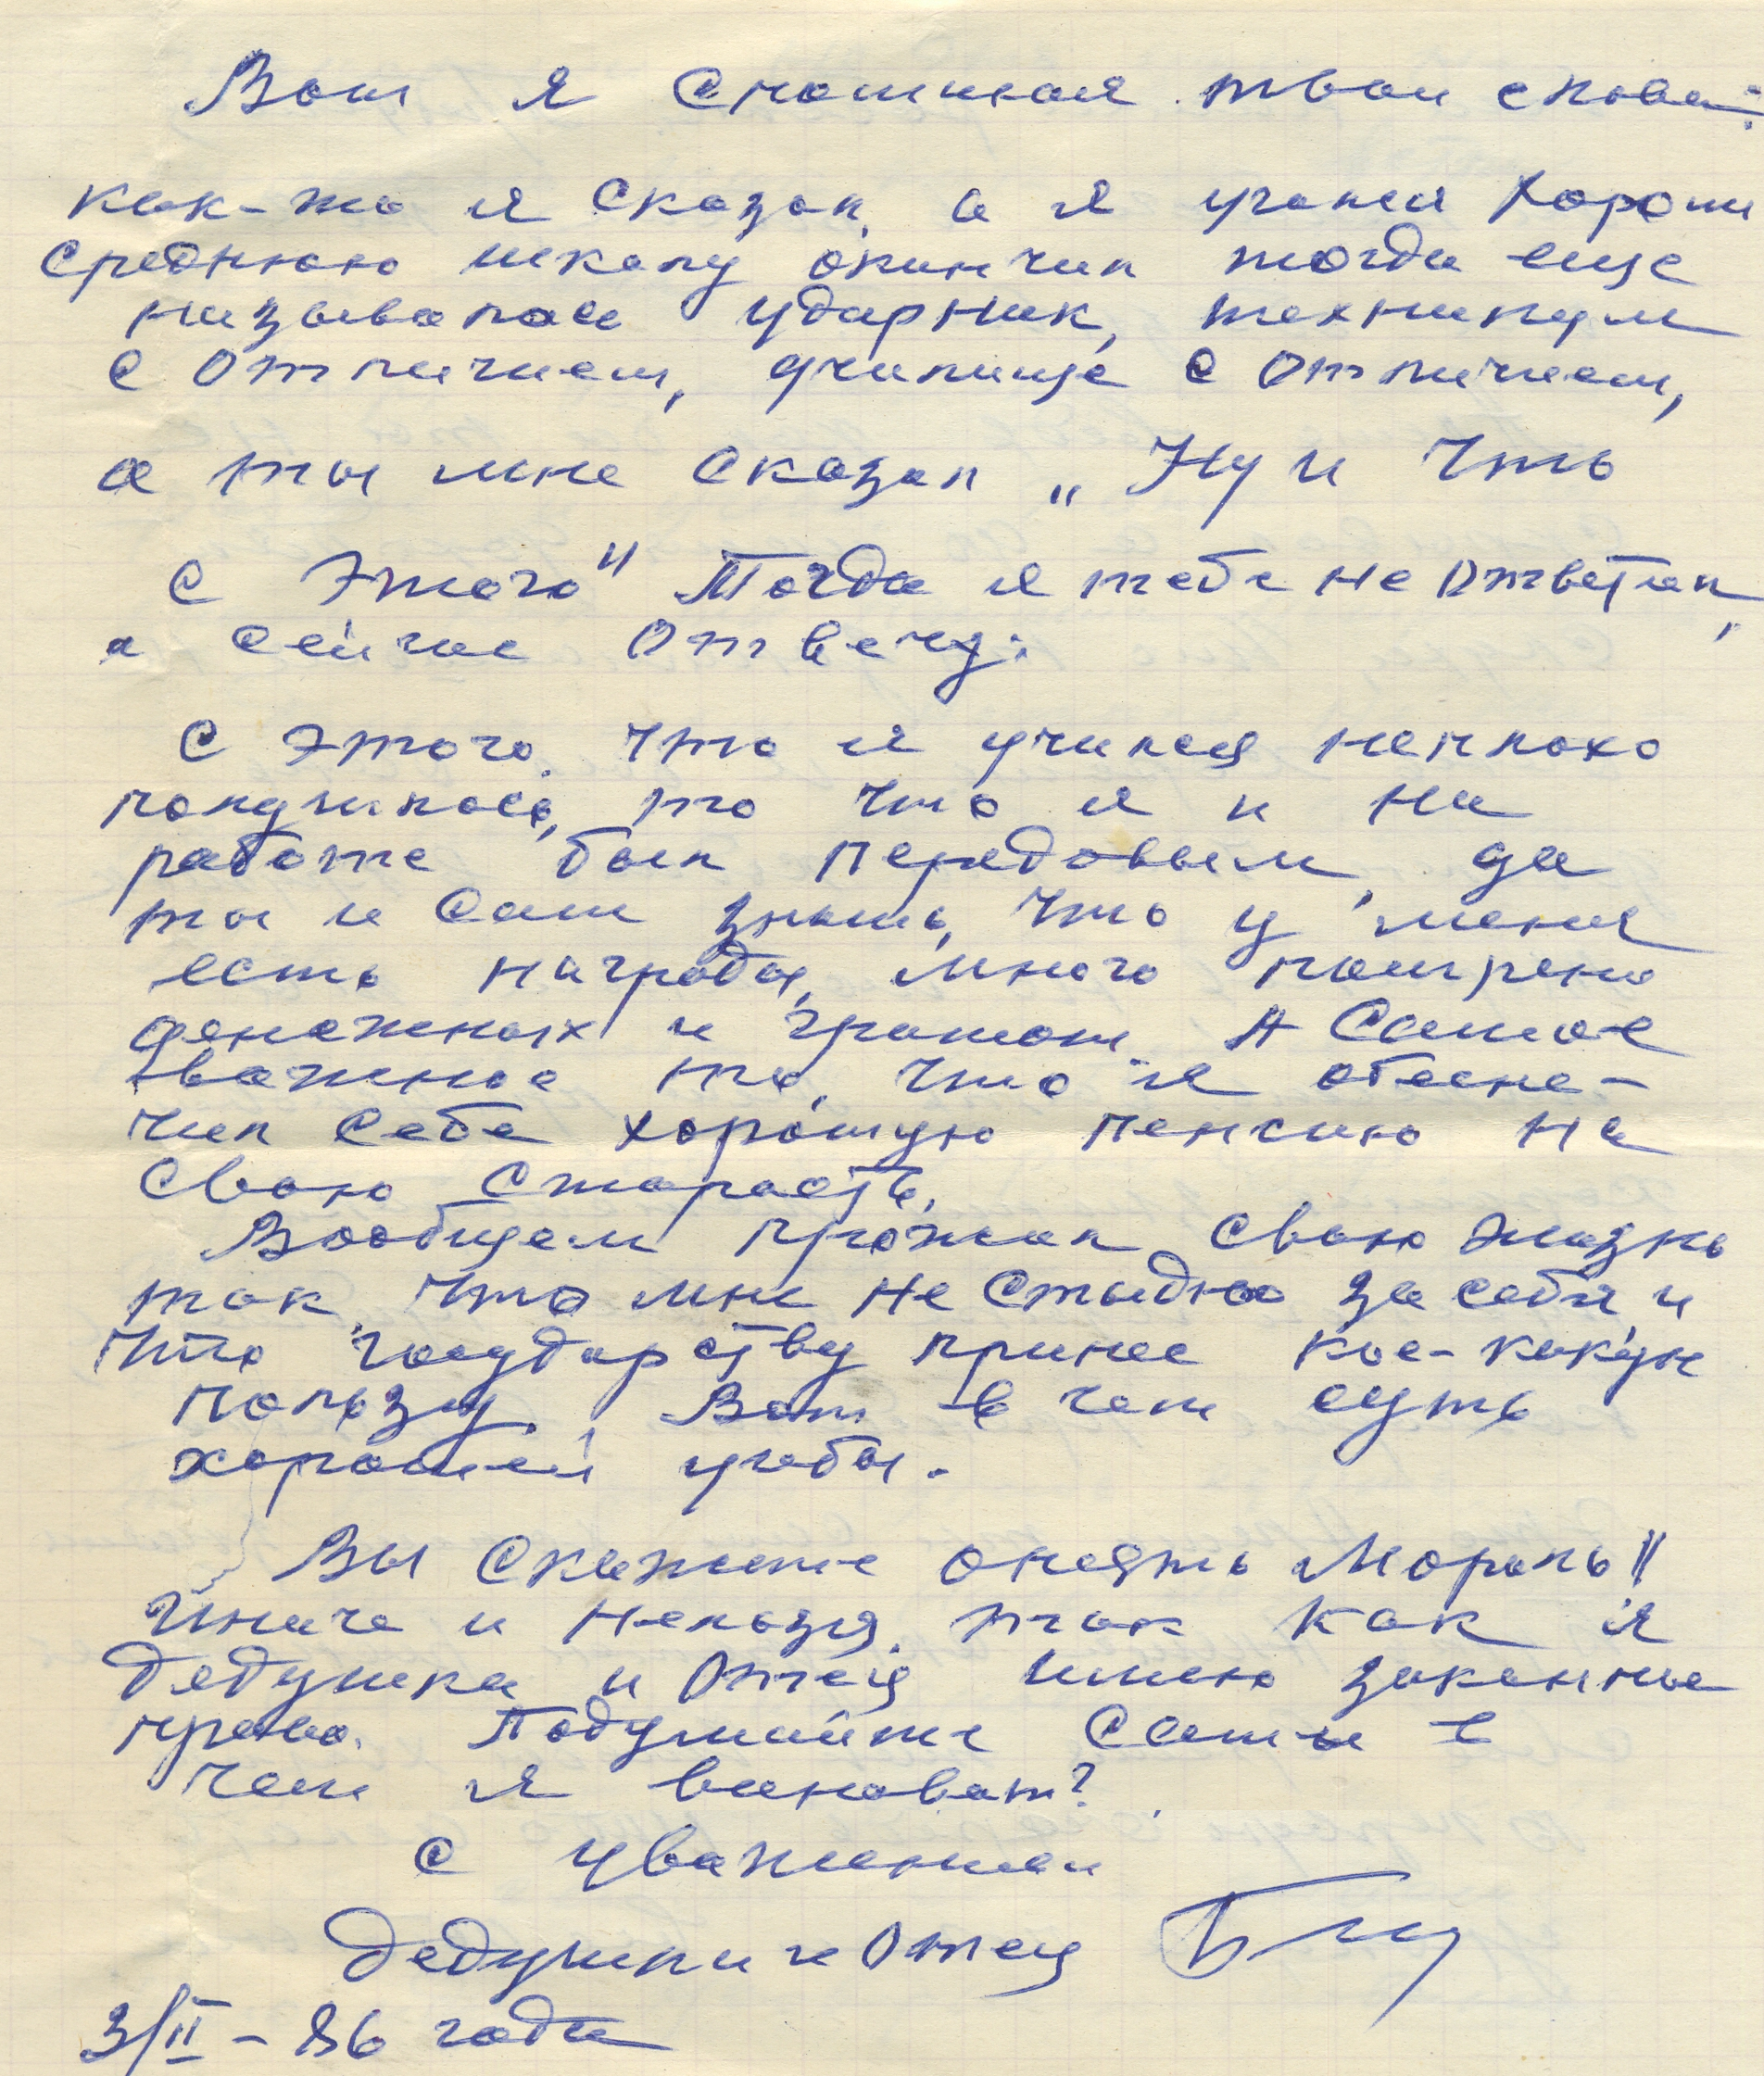 Вот я споминая твои слова:
как-то я сказал, а я учился хорошо
среднюю школу окончил тогда еще
называлось ударник, техникум
с отличием, училище с отличием,
а ты мне сказал „Ну и что
с этого" Тогда я тебе не ответил,
а сейчас отвечу:
С этого, что я учился неплохо
получилось, то что я и на
работе был передовым, да
ты и сам знаешь, что у меня
есть награды, много
денежных и грамот. А самое
важное то, что я обеспе-
чил себе хорошую пенсию на
свою старость.
Вообщем прожил свою жизнь
так, что мне не стыдно за себя, и
что государству принес кое-какую
пользу. Вот в чем суть
хорошей учебы.
Вы скажете опеять Мораль"
Иначе и нельзя, так как я
дедушка и Отец имею законное
право. Подумайте сами в
чем я виноват?
С уважением
дедушка и Отец
3/II – 86 года